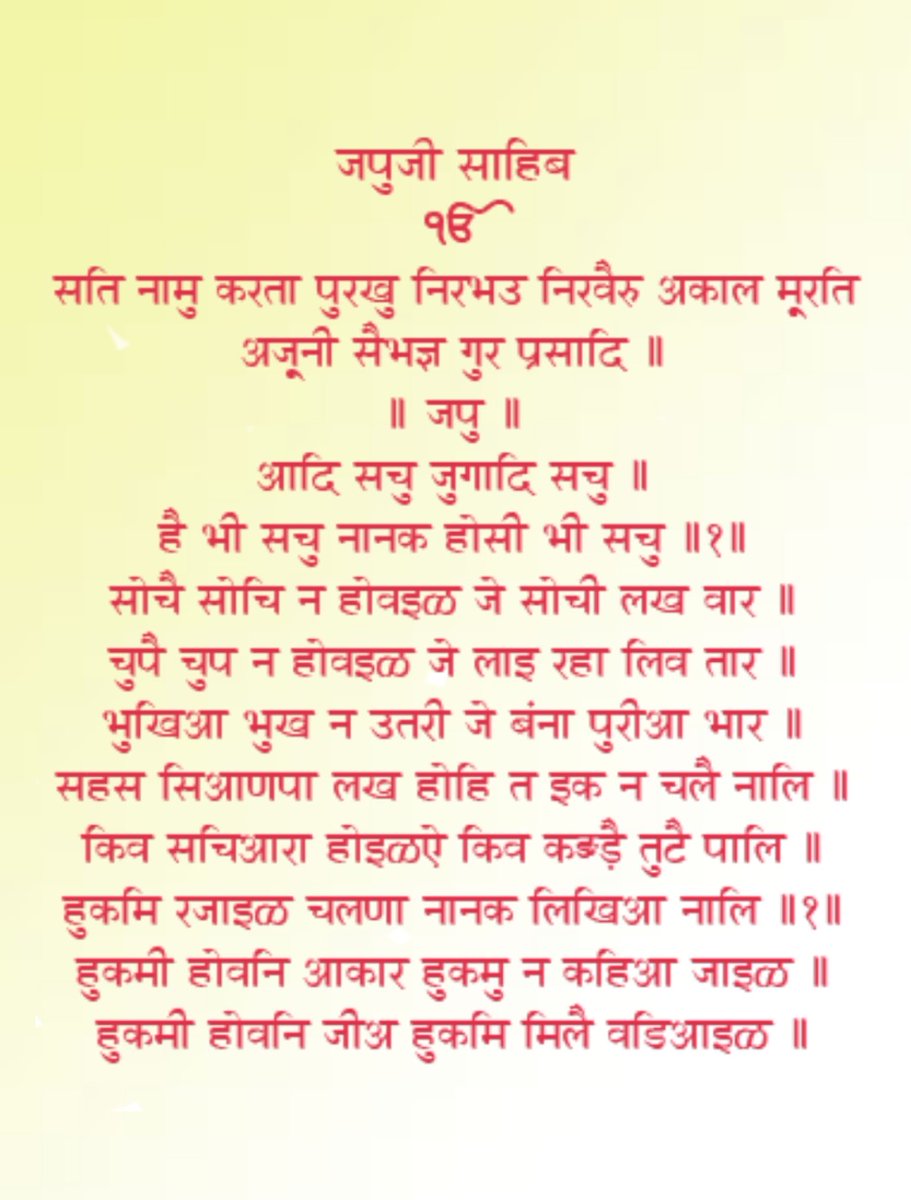 जपुजी साहिब
ੴ
सति नामु करता पुरखु निरभउ निरवैरु अकाल मूरति
अजूनी सैभज्ञ गुर प्रसादि ॥
॥ जपु ॥
आदि सचु जुगादि सचु ॥
है भी सचु नानक होसी भी सचु ॥१॥
सोचै सोचि न होवइळ जे सोची लख वार ॥
चुपै चुप न होवइळ जे लाइ रहा लिव तार ॥
भुखिआ भुख न उतरी जे बंना पुरीआ भार ॥
सहस सिआणपा लख होहि त इक न चलै नालि ॥
किव सचिआरा होइळऐ किव कङड़ै तुटै पालि ॥
हुकमि रजाइळ चलणा नानक लिखिआ नालि ॥१॥
हुकमी होवनि आकार हुकमु न कहिआ जाइळ ॥
हुकमी होवनि जीअ हुकमि मिलै वडिआइळ ॥